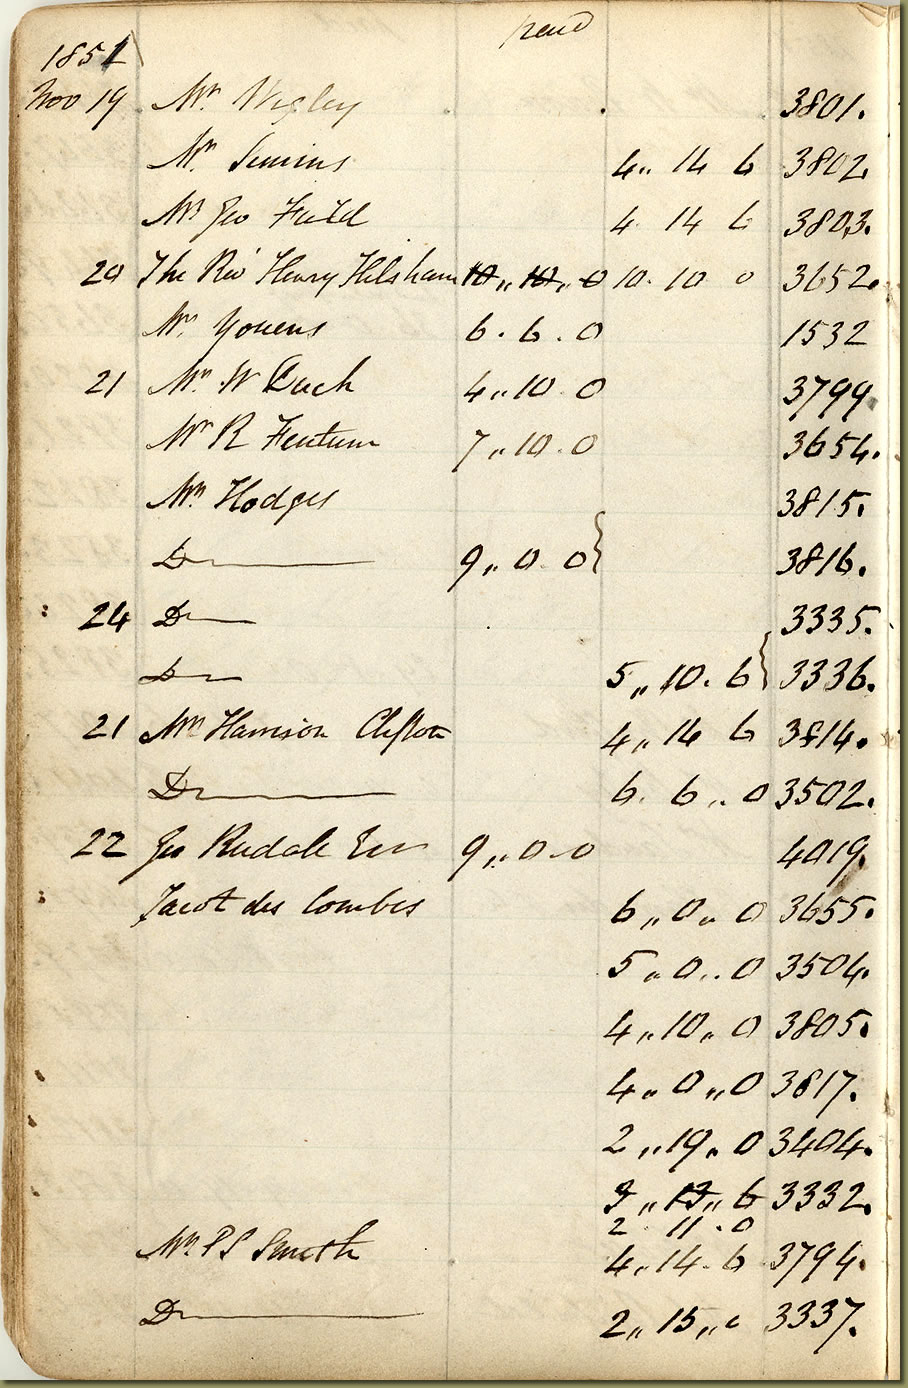 paid
1851
Nov 19 Mr. Wigley 3801.
Mr. Simms 4,, 14 6 3802.
Mr Geo Field 4 14 6 3803.
20 The Rev Henry Helsham 10,, 10,, 0 10. 10 0 3652.
Mr. Youens 6. 6. 0 1532
21 Mr. W Duck 4,, 10. 0 3799
Mr R Fentum 7,, 10. 0 3654.
Mr. Hodges 3815.
Do 9,, 0. 0 3816.
24 Do 3335.
Do 5,, 10. 6 3336.
21 Mr Harrison Clifton 4,, 14 6 3814.
Do 6. 6,, 0 3502.
22 Geo Rudall 9,, 0. 0 4019.
Jacot des Combes 6,, 0,, 0 3655.
5,, 0,, 0 3504.
4,, 10,, 0 3805.
4,, 0,, 0 3817.
2,, 19,, 0 3404.
3,, 13,, 6 3332.
2 11. 0
Mr. P S Smith 4,, 14. 6 3794.
Do 2,, 15,, 0 3337.